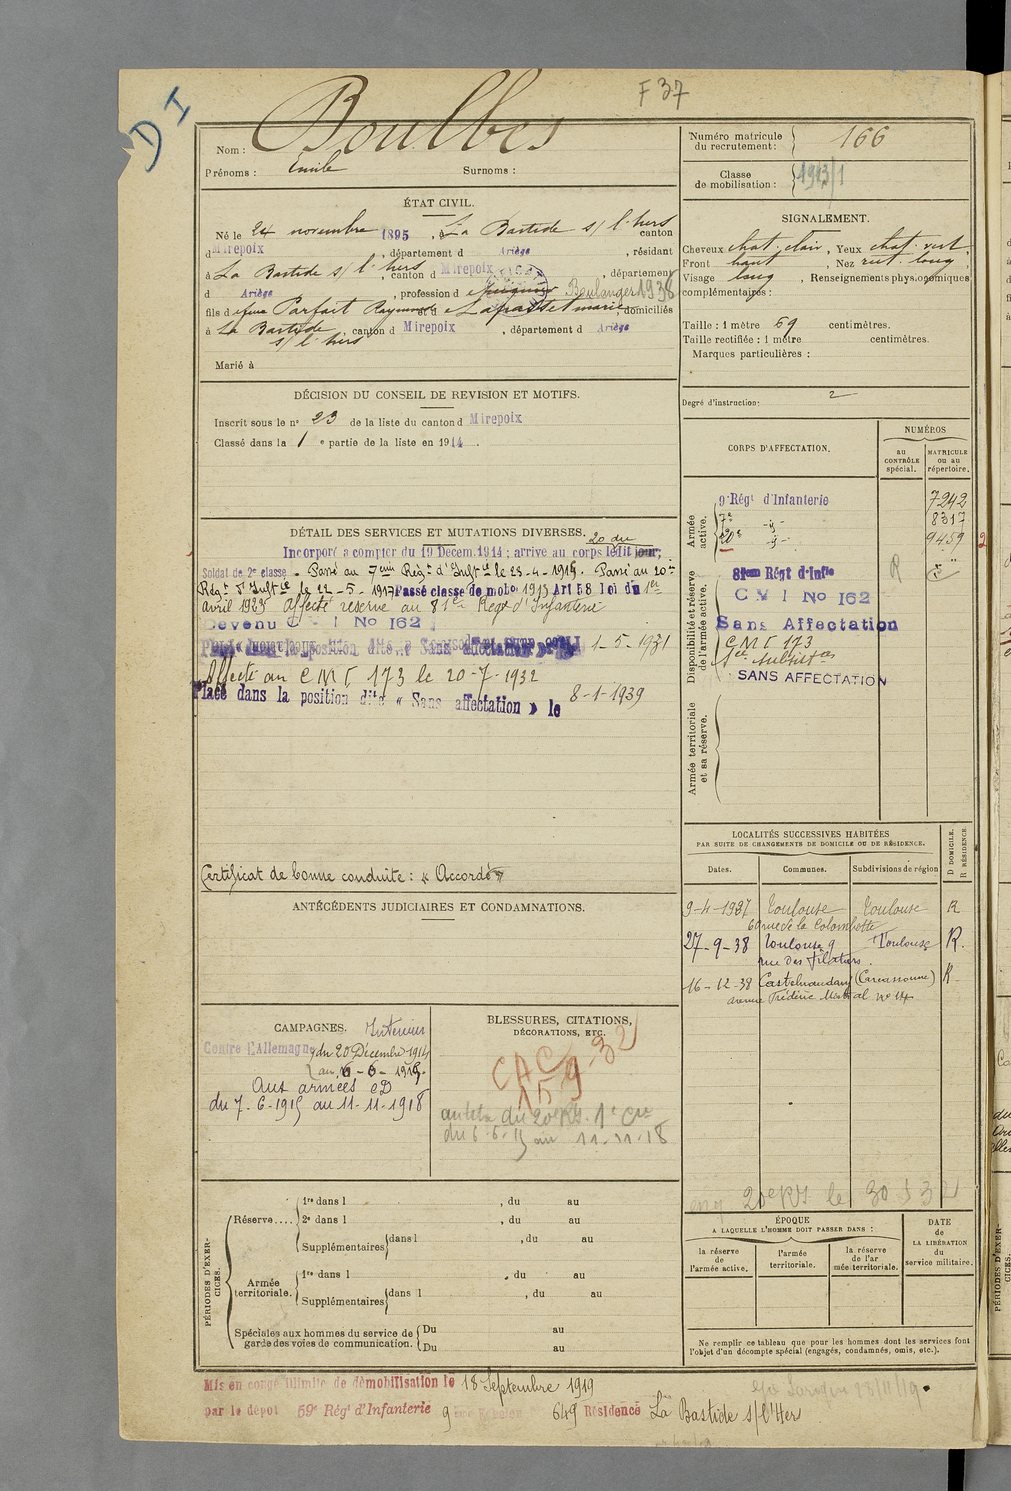 D I
F 37
Nom : Boulbès
Prénoms : Emile Surnoms :
Numéro matricule du recrutement : 166
Classe de mobilisation : 1913/1
ÉTAT CIVIL.
Né le 24 novembre 1895, à La Bastide s/ l'hers canton
d Mirepoix, département d Ariège, résidant
à La Bastide s/ l'hers, canton d Mirepoix, département
d Ariège, profession d Boulanger 1938
fils d Parfait Raymond et d Lapasset marie, domiciliés
à La Bastide s/ l'hers, canton d Mirepoix, département d Ariège
Marié à
SIGNALEMENT.
Cheveux chat. clair, Yeux chat. vert.
Front haut, Nez rect. long
Visage long, Renseignements physionomiques
complémentaires :
Taille : 1 mètre 69 centimètres.
Taille rectifiée : 1 mètre centimètres.
Marques particulières :
Degré d'instruction : 2
DÉCISION DU CONSEIL DE REVISION ET MOTIFS.
Inscrit sous le n° 23 de la liste du canton d Mirepoix
Classé dans la 1e partie de la liste en 1914.
CORPS D'AFFECTATION.
NUMÉROS
au CONTRÔLE spécial.
MATRICULE ou au répertoire.
Armée active.
9e Régt d'Infanterie 7242
7e -d°- 8317
20e -d°- 9459
Disponibilité et réserve de l'armée active.
81em Régt d'Infie
C M I No 162
Sans Affectation
C M I 173
SANS AFFECTATION
R
Armée territoriale et sa réserve.
DÉTAIL DES SERVICES ET MUTATIONS DIVERSES.
20 du
Incorporé à compter du 19 Décem. 1914 ; arrivé au corps ledit jour;
Soldat de 2e classe. Passé au 7eme Régt d'Inftie le 23-4-1915. Passé au 20e
Régt d'Inftie le 22-5-1917 Passé classe de mobo 1913 Art 58 loi du 1er
avril 1923 Affecté réserve au 81e Régt d'Infanterie
Devenu C M I No 162
1-5-1931
Affecté au C M I 173 le 20-7-1932
Placé dans la position dite « Sans affectation » le 8-1-1939
Certificat de bonne conduite : « Accordé »
ANTÉCÉDENTS JUDICIAIRES ET CONDAMNATIONS.
LOCALITÉS SUCCESSIVES HABITÉES
PAR SUITE DE CHANGEMENTS DE DOMICILE OU DE RÉSIDENCE.
Dates. Communes. Subdivisions de région D DOMICILE. R RÉSIDENCE.
9-4-1937 Toulouse Toulouse R
rue de la Colombette
27-9-38 Toulouse 9 Toulouse R.
rue des Filatiers.
16-12-38 Castelnaudary (Carcassonne) R
avenue Frédéric Mistral n° 14
CAMPAGNES.
Contre l'Allemagne
Intérieur
du 20 Décembre 1914
au 6-6-1915.
Aux armées CD
du 7-6-1915 au 11-11-1918
BLESSURES, CITATIONS,
DÉCORATIONS, ETC.
CAC
15 9 32
du 20e RI 1e Cie
du 6-6-15 au 11-11-18
20e RI le 30 5 32
PÉRIODES D'EXERCICES.
Réserve....
1re dans l , du au
2e dans l , du au
Supplémentaires dans l , du au
Armée territoriale.
1re dans l , du au
Supplémentaires dans l , du au
Spéciales aux hommes du service de garde des voies de communication.
Du au
Du au
ÉPOQUE
A LAQUELLE L'HOMME DOIT PASSER DANS :
la réserve de l'armée active.
l'armée territoriale.
la réserve de l'armée territoriale.
DATE DE LA LIBÉRATION du service militaire.
Ne remplir ce tableau que pour les hommes dont les services font
l'objet d'un décompte spécial (engagés, condamnés, omis, etc.).
Mis en congé illimité de démobilisation le 18 Septembre 1919
par le dépôt 59e Régt d'Infanterie 9eme Echelon 649 Résidence La Bastide s/l'Hers